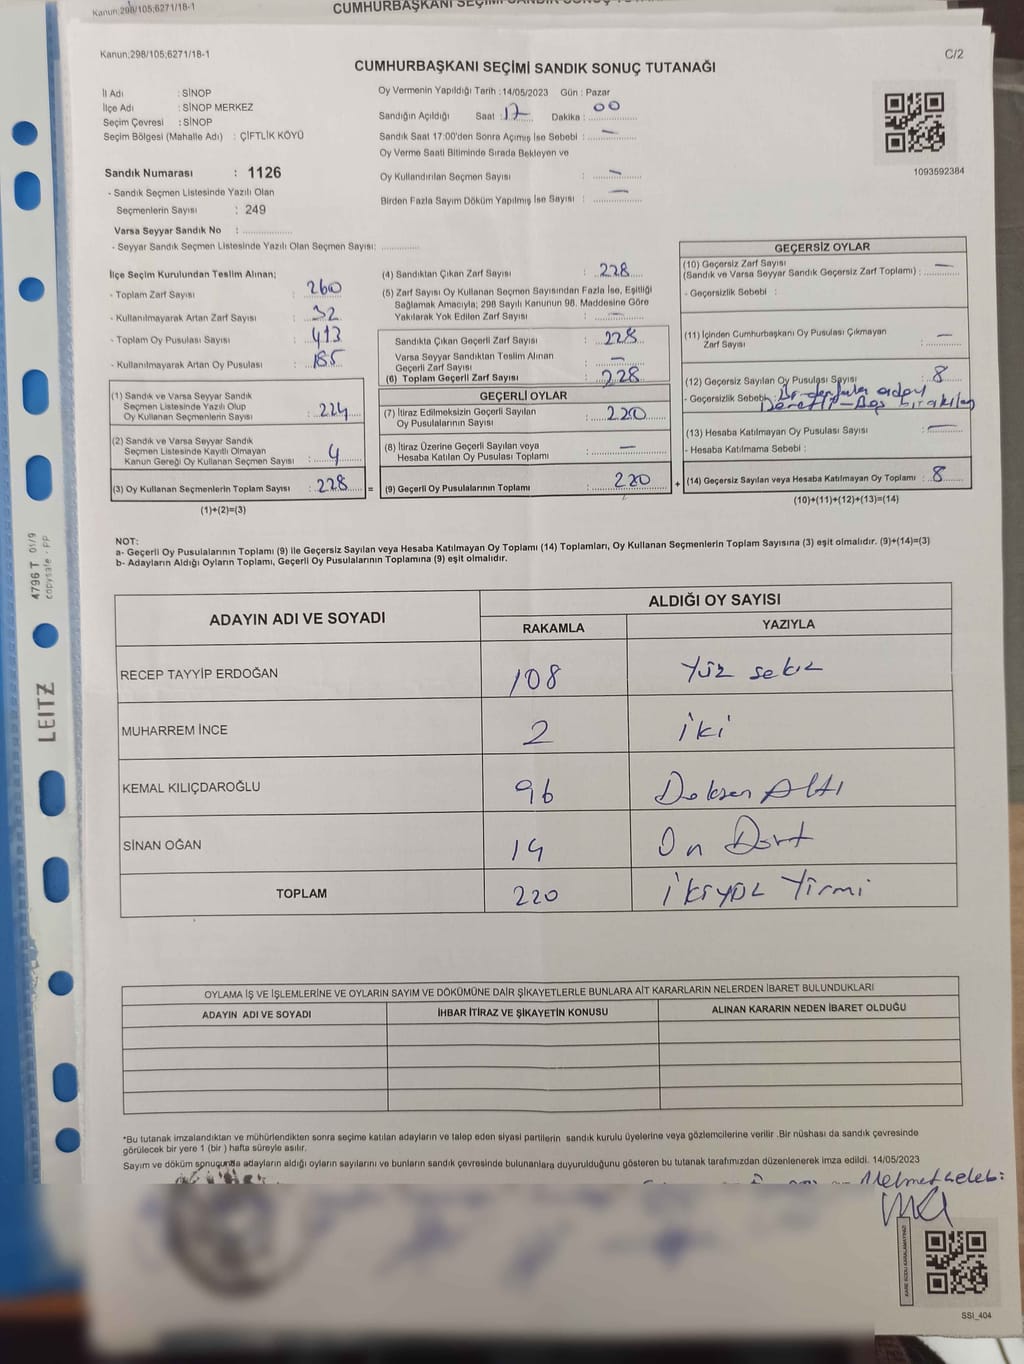 Kanun;298/105;6271/18-1
Kanun;298/105;6271/18-1
C/2
CUMHURBAŞKANI SEÇİMİ SANDIK SONUÇ TUTANAĞI
İl Adı : SİNOP
İlçe Adı : SİNOP MERKEZ
Seçim Çevresi : SİNOP
Seçim Bölgesi (Mahalle Adı) : ÇİFTLİK KÖYÜ
Sandık Numarası : 1126
- Sandık Seçmen Listesinde Yazılı Olan
Seçmenlerin Sayısı : 249
Varsa Seyyar Sandık No :
- Seyyar Sandık Seçmen Listesinde Yazılı Olan Seçmen Sayısı:
Oy Vermenin Yapıldığı Tarih : 14/05/2023 Gün : Pazar
Sandığın Açıldığı Saat : 17 Dakika : 00
Sandık Saat 17:00'den Sonra Açımış İse Sebebi : —
Oy Verme Saati Bitiminde Sırada Bekleyen ve
Oy Kullandırılan Seçmen Sayısı : —
Birden Fazla Sayım Döküm Yapılmış İse Sayısı : —
1093592384
İlçe Seçim Kurulundan Teslim Alınan;
- Toplam Zarf Sayısı : 260
- Kullanılmayarak Artan Zarf Sayısı : 32
- Toplam Oy Pusulası Sayısı : 413
- Kullanılmayarak Artan Oy Pusulası : 185
(1) Sandık ve Varsa Seyyar Sandık
Seçmen Listesinde Yazılı Olup
Oy Kullanan Seçmenlerin Sayısı : 224
(2) Sandık ve Varsa Seyyar Sandık
Seçmen Listesinde Kayıtlı Olmayan
Kanun Gereği Oy Kullanan Seçmen Sayısı : 4
(3) Oy Kullanan Seçmenlerin Toplam Sayısı : 228 =
(1)+(2)=(3)
(4) Sandıktan Çıkan Zarf Sayısı : 228
(5) Zarf Sayısı Oy Kullanan Seçmen Sayısından Fazla İse, Eşitliği
Sağlamak Amacıyla; 298 Sayılı Kanunun 98. Maddesine Göre
Yakılarak Yok Edilen Zarf Sayısı : —
Sandıkta Çıkan Geçerli Zarf Sayısı : 228
Varsa Seyyar Sandıktan Teslim Alınan
Geçerli Zarf Sayısı : —
(6) Toplam Geçerli Zarf Sayısı : 228
GEÇERLİ OYLAR
(7) İtiraz Edilmeksizin Geçerli Sayılan
Oy Pusulalarının Sayısı : 220
(8) İtiraz Üzerine Geçerli Sayılan veya
Hesaba Katılan Oy Pusulası Toplamı : —
(9) Geçerli Oy Pusulalarının Toplamı : 220 +
GEÇERSİZ OYLAR
(10) Geçersiz Zarf Sayısı
(Sandık ve Varsa Seyyar Sandık Geçersiz Zarf Toplamı) : —
- Geçersizlik Sebebi :
(11) İçinden Cumhurbaşkanı Oy Pusulası Çıkmayan
Zarf Sayısı : —
(12) Geçersiz Sayılan Oy Pusulası Sayısı : 8
- Geçersizlik Sebebi : Birden fazla aday
- Boş bırakılan
(13) Hesaba Katılmayan Oy Pusulası Sayısı : —
- Hesaba Katılmama Sebebi :
(14) Geçersiz Sayılan veya Hesaba Katılmayan Oy Toplamı : 8
(10)+(11)+(12)+(13)=(14)
NOT:
a- Geçerli Oy Pusulalarının Toplamı (9) ile Geçersiz Sayılan veya Hesaba Katılmayan Oy Toplamı (14) Toplamları, Oy Kullanan Seçmenlerin Toplam Sayısına (3) eşit olmalıdır. (9)+(14)=(3)
b- Adayların Aldığı Oyların Toplamı, Geçerli Oy Pusulalarının Toplamına (9) eşit olmalıdır.
ADAYIN ADI VE SOYADI
ALDIĞI OY SAYISI
RAKAMLA YAZIYLA
RECEP TAYYİP ERDOĞAN 108 Yüz sekiz
MUHARREM İNCE 2 iki
KEMAL KILIÇDAROĞLU 96 Doksan Altı
SİNAN OĞAN 14 On Dört
TOPLAM 220 ikiyüz Yirmi
OYLAMA İŞ VE İŞLEMLERİNE VE OYLARIN SAYIM VE DÖKÜMÜNE DAİR ŞİKAYETLERLE BUNLARA AİT KARARLARIN NELERDEN İBARET BULUNDUKLARI
ADAYIN ADI VE SOYADI İHBAR İTİRAZ VE ŞİKAYETİN KONUSU ALINAN KARARIN NEDEN İBARET OLDUĞU
*Bu tutanak imzalandıktan ve mühürlendikten sonra seçime katılan adayların ve talep eden siyasi partilerin sandık kurulu üyelerine veya gözlemcilerine verilir .Bir nüshası da sandık çevresinde
görülecek bir yere 1 (bir) hafta süreyle asılır.
Sayım ve döküm sonuçunda adayların aldığı oyların sayılarını ve bunların sandık çevresinde bulunanlara duyurulduğunu gösteren bu tutanak tarafımızdan düzenlenerek imza edildi. 14/05/2023
KARE KODU KARALAMAYINIZ!
SSI_404
LEITZ
4796 T 01/9
copysafe · PP